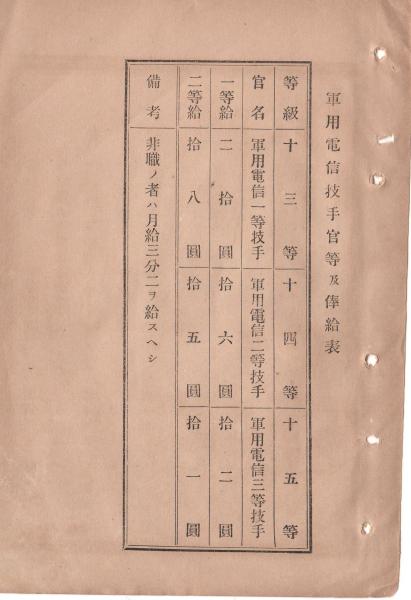 軍用電信技手官等及俸給表
等級 十三等 十四等 十五等
官名 軍用電信一等技手 軍用電信二等技手 軍用電信三等技手
一等給 二拾圓 拾六圓 拾二圓
二等給 拾八圓 拾五圓 拾一圓
備考 非職ノ者ハ月給三分二ヲ給スヘシ